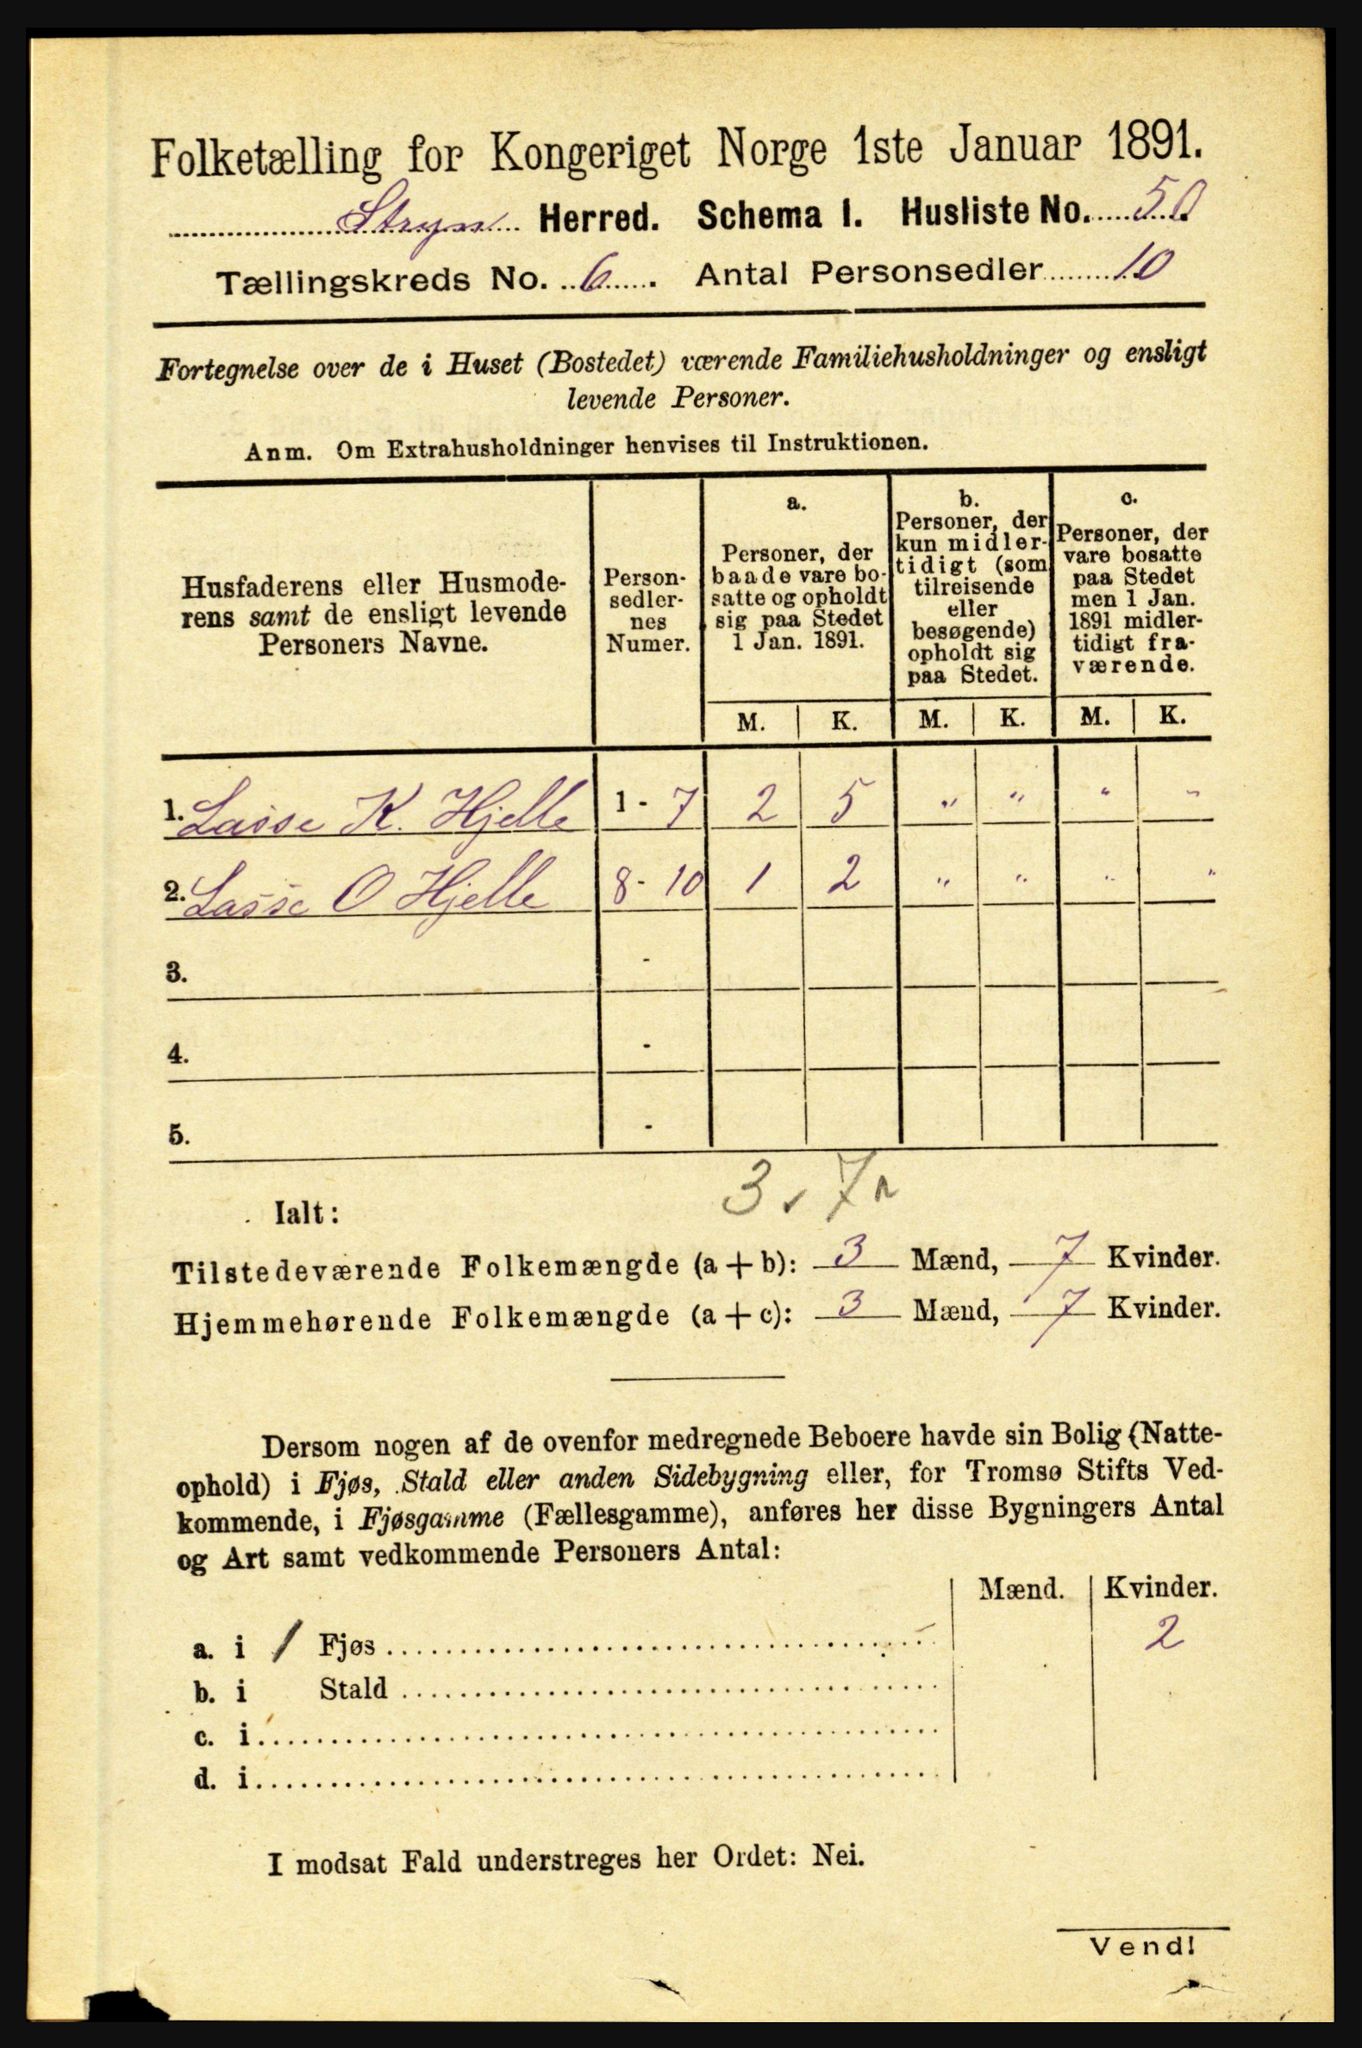 Folketælling for Kongeriget Norge 1ste Januar 1891.
Stryn Herred. Schema I. Husliste No. 50.
Tællingskreds No. 6. Antal Personsedler 10
Fortegnelse over de i Huset (Bostedet) værende Familiehusholdninger og ensligt
levende Personer.
Anm. Om Extrahusholdninger henvises til Instruktionen.
Husfaderens eller Husmode-
rens samt de ensligt levende
Personers Navne.
Person-
sedler-
nes
Numer.
a.
Personer, der
baade vare bo-
satte og opholdt
sig paa Stedet
1 Jan. 1891.
b.
Personer, der
kun midler-
tidigt (som
tilreisende
eller
besøgende)
opholdt sig
paa Stedet.
c.
Personer, der
vare bosatte
paa Stedet
men 1 Jan.
1891 midler-
tidigt fra-
værende.
M. K. M. K. M. K.
1. Lasse K. Hjelle 1 - 7 2 5 " " " "
2. Lasse O Hjelle 8 - 10 1 2 " " " "
3. -
4. -
5. -
3 7
Ialt:
Tilstedeværende Folkemængde (a + b): 3 Mænd, 7 Kvinder.
Hjemmehørende Folkemængde (a + c): 3 Mænd, 7 Kvinder.
Dersom nogen af de ovenfor medregnede Beboere havde sin Bolig (Natte-
ophold) i Fjøs, Stald eller anden Sidebygning eller, for Tromsø Stifts Ved-
kommende, i Fjøsgamme (Fællesgamme), anføres her disse Bygningers Antal
og Art samt vedkommende Personers Antal:
Mænd. Kvinder.
a. i 1 Fjøs 2
b. i Stald
c. i
d. i
I modsat Fald understreges her Ordet: Nei.
Vend!